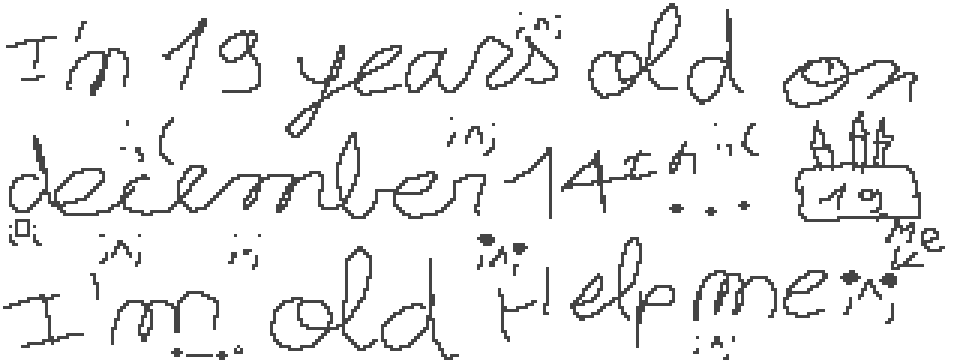 I'm 19 years old on
december 14th ... 19
Me
I'm old Help me